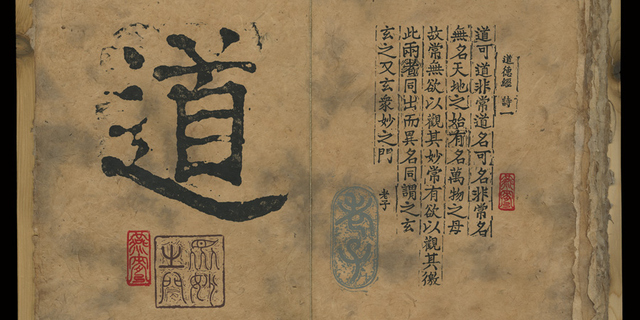 道德經 詩一
道可道非常道名可名非常名
無名天地之始有名萬物之母
故常無欲以觀其妙常有欲以觀其徼
此兩者同出而異名同謂之玄
玄之又玄衆妙之門
老子
道
眾妙之門